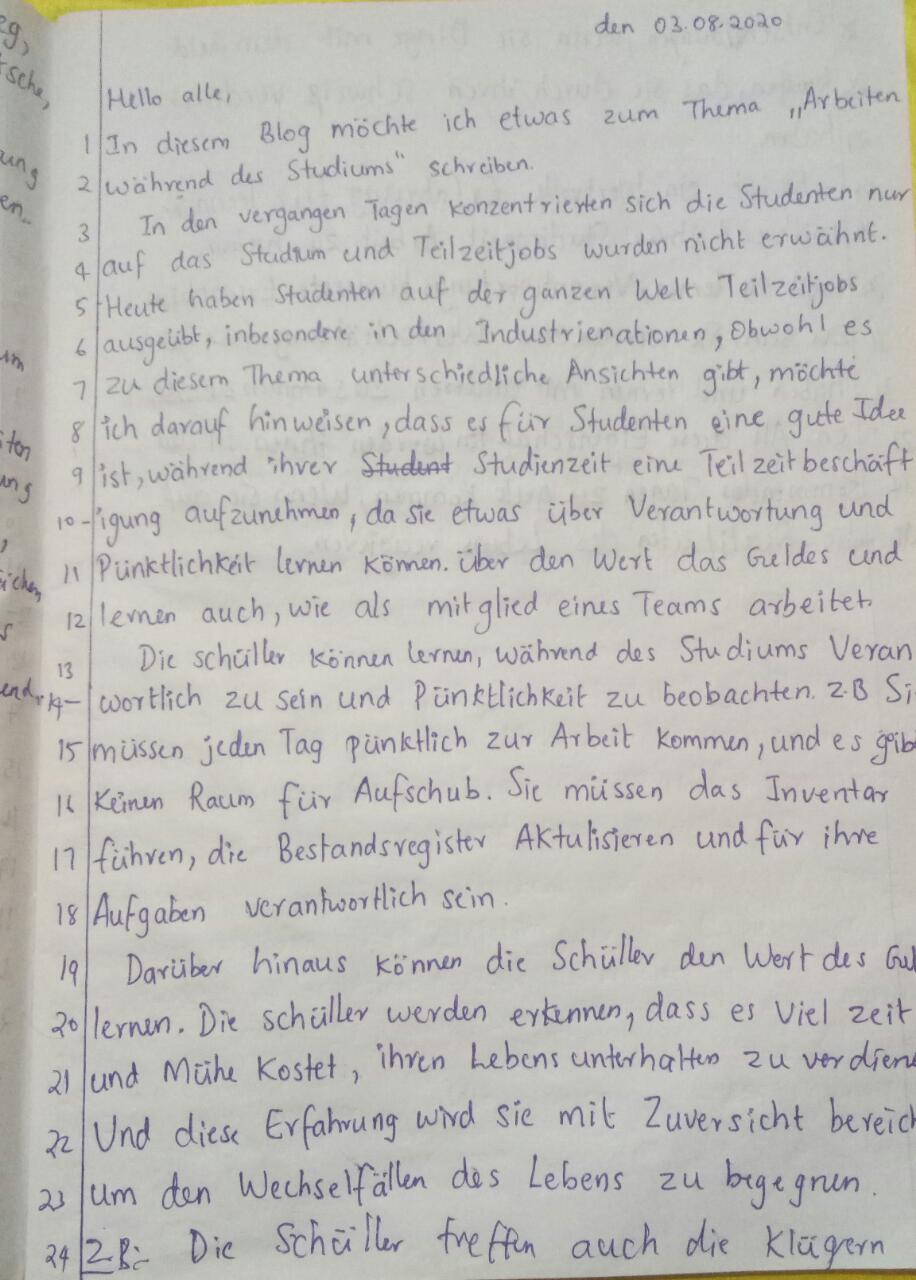 eg,
tsche,
ung
en..
um
iton
ung
,
ichen
s
end..
den 03.08.2020
Hello alle,
1 In diesem Blog möchte ich etwas zum Thema „Arbeiten
2 während des Studiums" schreiben.
3 In den vergangen Tagen konzentrierten sich die Studenten nur
4 auf das Studium und Teilzeitjobs wurden nicht erwähnt.
5 Heute haben Studenten auf der ganzen Welt Teilzeitjobs
6 ausgeübt, inbesondere in den Industrienationen, Obwohl es
7 zu diesem Thema unterschiedliche Ansichten gibt, möchte
8 ich darauf hinweisen, dass es für Studenten eine gute Idee
9 ist, während ihrer Student Studienzeit eine Teilzeitbeschäft
10 -igung aufzunehmen, da sie etwas über Verantwortung und
11 Pünktlichkeit lernen können. Über den Wert das Geldes und
12 lernen auch, wie als mitglied eines Teams arbeitet.
13 Die schüller können lernen, während des Studiums Veran
14- wortlich zu sein und Pünktlichkeit zu beobachten. Z.B Si
15 müssen jeden Tag pünktlich zur Arbeit kommen, und es gib
16 Keinen Raum für Aufschub. Sie müssen das Inventar
17 führen, die Bestandsregister Aktulisieren und für ihre
18 Aufgaben verantwortlich sein.
19 Darüber hinaus können die Schüller den Wert des Gel
20 lernen. Die schüller werden erkennen, dass es Viel zeit
21 und Mühe Kostet, ihren Lebensunterhalten zu verdiene
22 Und diese Erfahrung wird sie mit Zuversicht bereich
23 um den Wechselfällen des Lebens zu begegnen.
24 Z.B:- Die Schüller treffen auch die Klügern